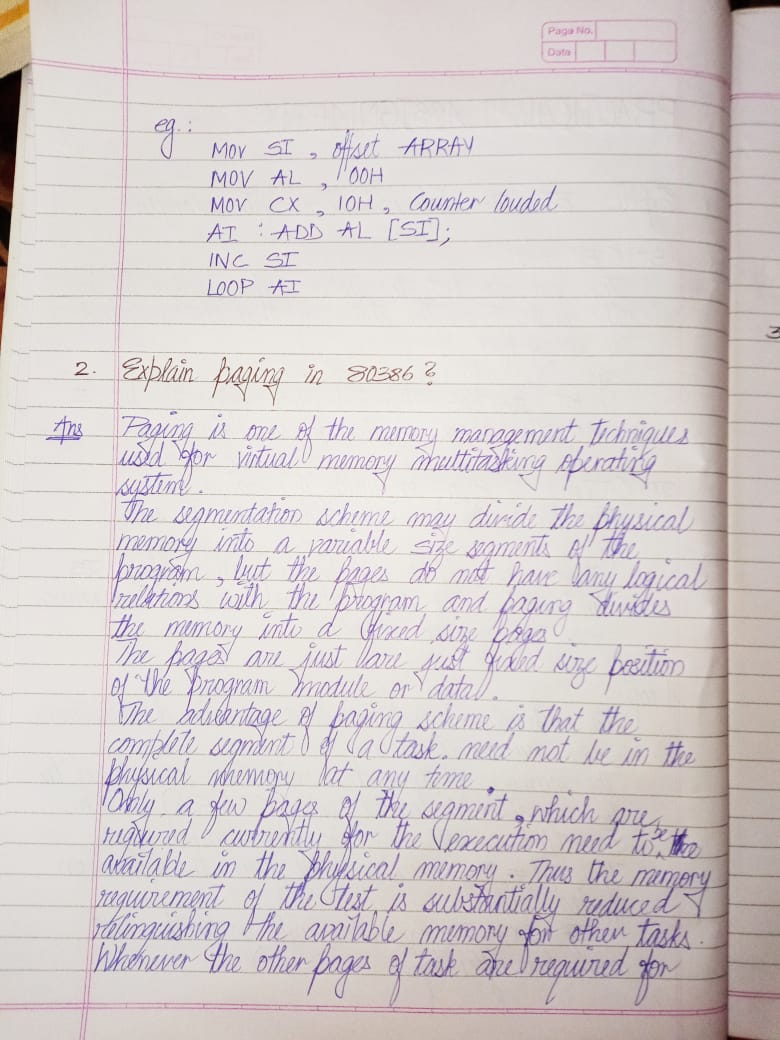 Page No.
Date
eg.:
MOV SI, offset ARRAY
MOV AL, 00H
MOV CX, 10H, Counter louded
AI : ADD AL [SI];
INC SI
LOOP AI
3
2. Explain paging in 80386?
Ans Paging is one of the memory management techniques
used for virtual memory multitasking operating
system.
The segmentation scheme may divide the physical
memory into a variable size segments of the
program, but the pages do not have any logical
relations with the program and paging divides
the memory into a fixed size pages
The pages are just are just fixed size position
of the program module or data.
The advantage of paging scheme is that the
complete segment of a task. need not be in the
physical memory at any time.
Only a few pages of the segment, which are
required currently for the execution need to be the
available in the physical memory. Thus the memory
requirement of the test is substantially reduced
relinguishing the available memory for other tasks.
Whenever the other pages of task are required for